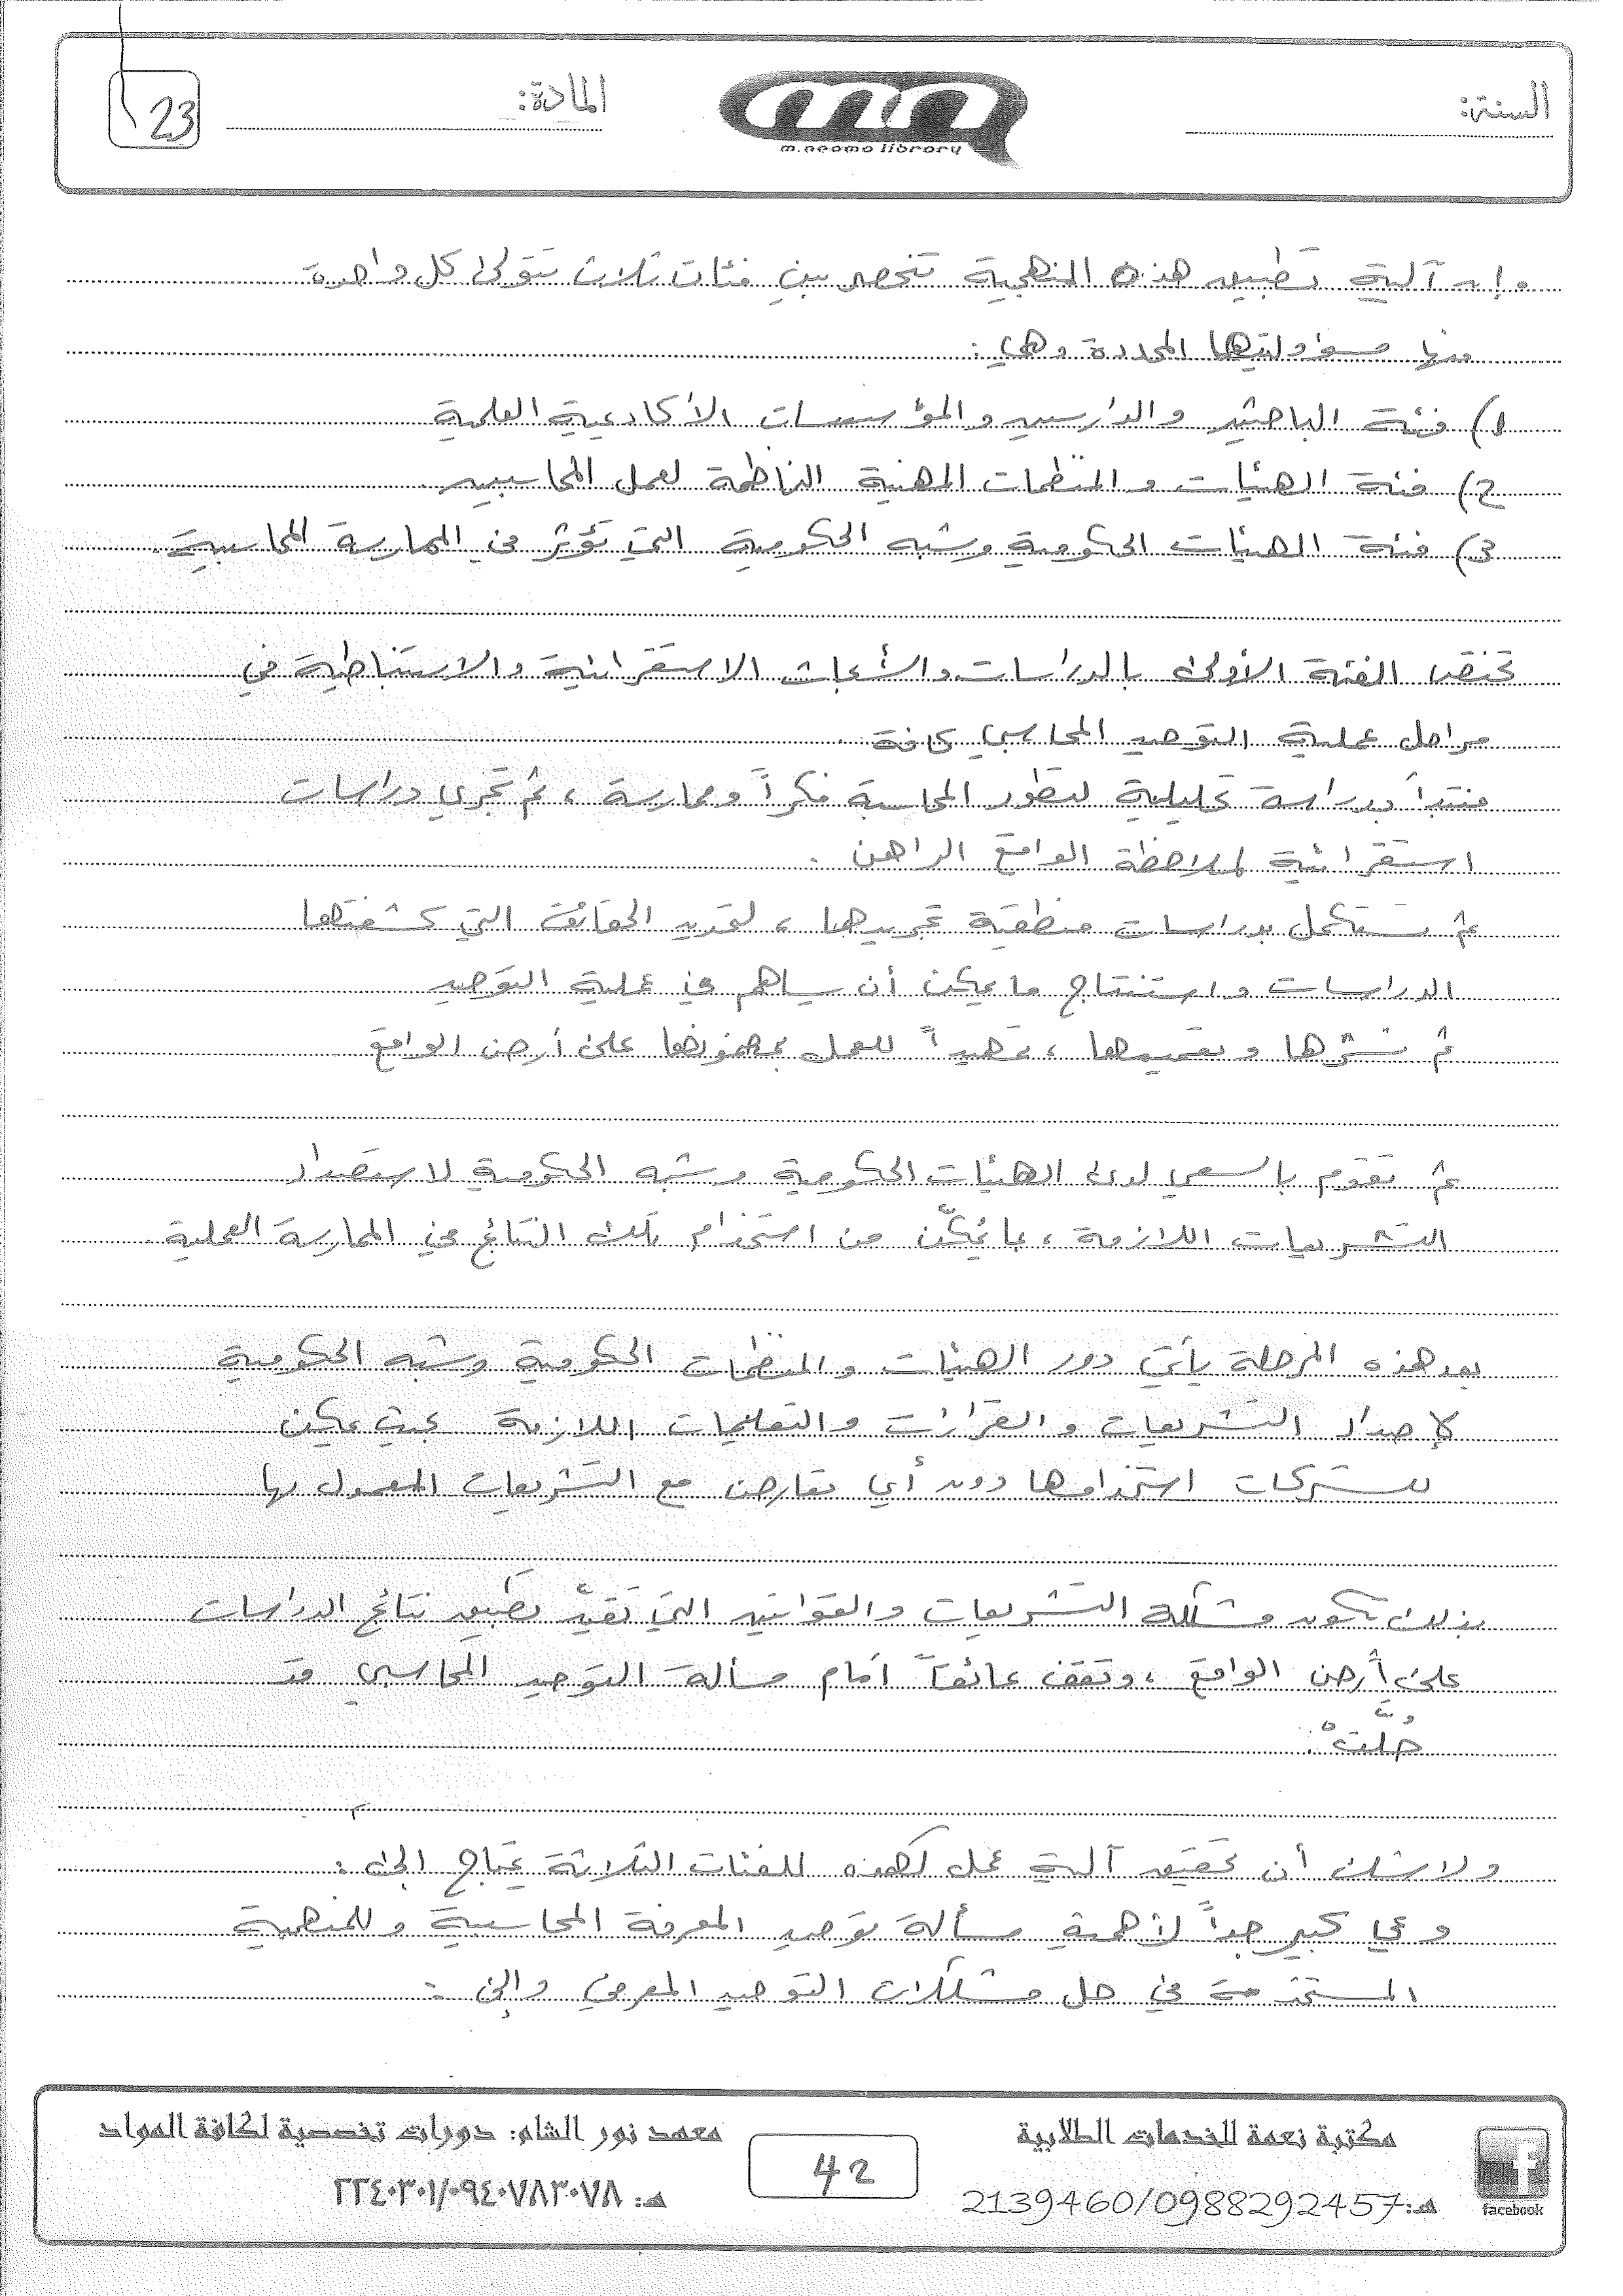 السنة:
المادة:
23
m.neama library
وإن آلية تطبيق هذه المنهجية تنحصر بين فئات ثلاث تتولى كل واحدة
منها مسؤوليتها المحددة وهي:
1) فئة الباحثين والدارسين والمؤسسات الأكاديمية العلمية
2) فئة الهيئات والمنظمات المهنية الناظمة لعمل المحاسبين.
3) فئة الهيئات الحكومية وشبه الحكومية التي تؤثر في الممارسة المحاسبية.
تختص الفئة الأولى بالدراسات والأبحاث الاستقرائية والاستنباطية في
مراحل عملية التوحيد المحاسبي كافة.
فتبدأ بدراسة تحليلية لتطور المحاسبة فكراً وممارسة، ثم تجري دراسات
استقرائية لملاحظة الواقع الراهن.
ثم تستكمل بدراسات منطقية تجريبها، لتحديد الحقائق التي كشفتها
الدراسات واستنتاج ما يمكن أن يساهم في عملية التوحيد
ثم نشرها وتعميمها، تمهيداً للعمل بمضمونها على أرض الواقع
ثم تقوم بالسعي لدى الهيئات الحكومية وشبه الحكومية لاستصدار
التشريعات اللازمة، بما يُمكّن من استخدام تلك النتائج في الممارسة العملية.
بعد هذه المرحلة يأتي دور الهيئات والمنظمات الحكومية وشبه الحكومية
لإصدار التشريعات والقرارات والتعليمات اللازمة بحيث يمكن
للشركات استخدامها دون أي تعارض مع التشريعات المعمول بها
بذلك تكون مشكلة التشريعات والقوانين التي تقيّد تطبيق نتائج الدراسات
على أرض الواقع، وتقف عائقاً أمام مسألة التوحيد المحاسبي قد
حُلّتْ.
ولا شك أن تحقيق آلية عمل كهذه للفئات الثلاثة يحتاج إلى:
وعي كبير جداً لأهمية مسألة توحيد المعرفة المحاسبية وللمنهجية
المستخدمة في حل مشكلات التوحيد المعرفي وإلى:
مكتبة نعمة للخدمات الطلابية
هـ: 2139460/0988292457
42
معهد نور الشام: دورات تخصصية لكافة المواد
هـ: ٢٢٤٠٣٠١/٠٩٤٠٧٨٣٠٧٨
facebook